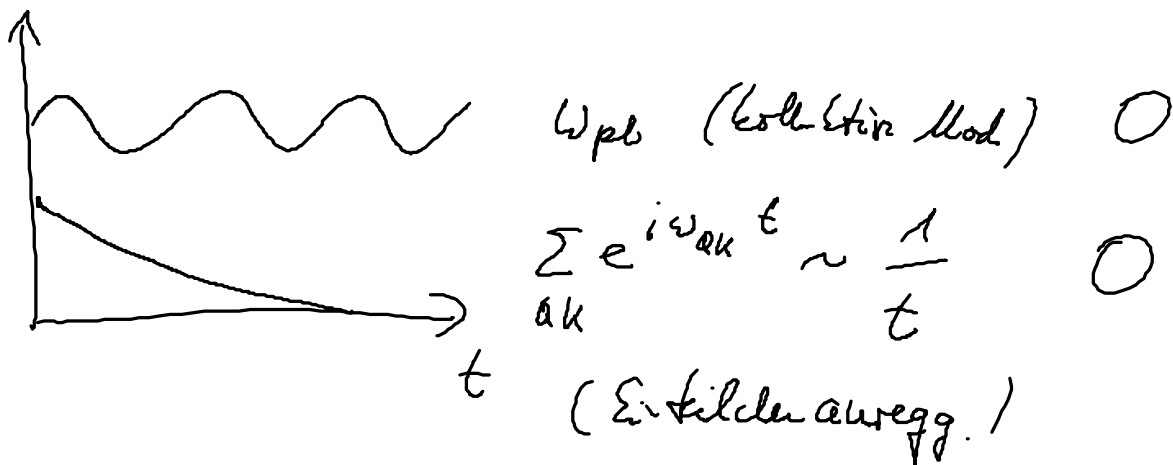 ω_pl (kollektive Mod)
∑_{qk} e^{iω_{qk} t} ~ 1/t
t
(Einteilchenanregg.)